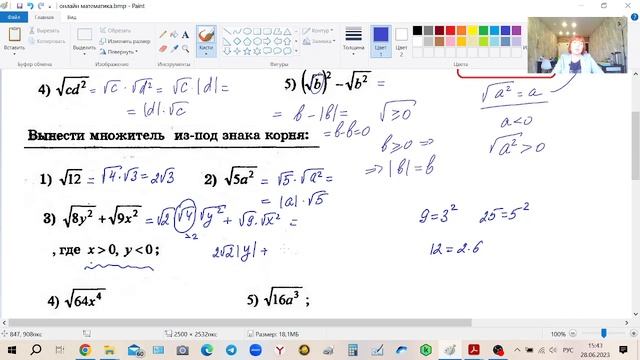 онлайн математика.bmp - Paint
Файл Главная Вид
Вставить Вырезать Копировать Выделить Обрезать Изменить размер Повернуть Кисти Фигуры Контур Заливка Толщина Цвет 1 Цвет 2
Буфер обмена Изображение Инструменты Фигуры
4) √cd² = √c · √d² = √c · |d| =
= |d|·√c
5) (√b)² − √b² =
= b − |b| =
= b-b=0
√≥0
b≥0 ⇒
⇒ |b| = b
√a² = a
a<0
√a² > 0
Вынести множитель из-под знака корня:
1) √12 = √4·√3 = 2√3
2) √5a² = √5·√a² =
= |a|·√5
3) √8y² + √9x² = √2 √4 √y² + √9·√x² =
=2
, где x > 0, y < 0;
2√2|y| +
9=3² 25=5²
12=2·6
4) √64x⁴
5) √16a³ ;
847, 908пкс 2500 × 2532пкс Размер: 18,1МБ 100%
РУС 15:43
28.06.2023